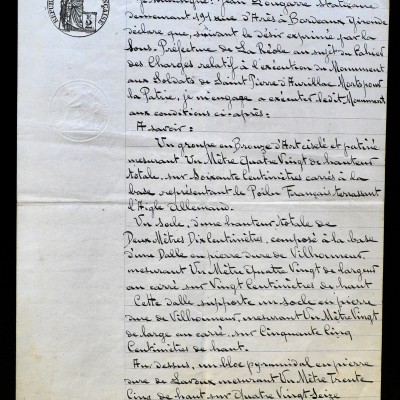 Jean Dougarre Statuaire
demeurant 191 rue d'Arès à Bordeaux Gironde
déclare que, suivant le désir exprimé par la
Sous, Préfecture de La Réole au sujet du Cahier
des Charges relatif à l'exécution du Monument
aux Soldats de Saint Pierre d'Aurillac Morts pour
la Patrie, je m'engage a exécuter ledit Monument
aux conditions ci-après:
A savoir:
Un groupe en Bronze d'Art ciselé et patiné
mesurant Un Mètre Quatre Vingt de hauteur
totale sur Soixante Centimètres carrés à la
base représentant le Poilu Français terrassant
l'Aigle Allemand.
Un socle, d'une hauteur totale de
Deux Mètres Dix Centimètres, composé à la base
d'une Dalle en pierre dure de Vilhonneur
mesurant Un Mètre Quatre Vingt de largeur
au carré sur Vingt Centimètres de haut
Cette dalle supporte un socle en pierre
dure de Vilhonneur, mesurant Un Mètre Vingt
de large au carré sur Cinquante Cinq
Centimètres de haut.
Au dessus, un bloc pyramidal en pierre
dure de Lavoux mesurant Un Mètre Trente
Cinq de haut sur Quatre Vingt Seize